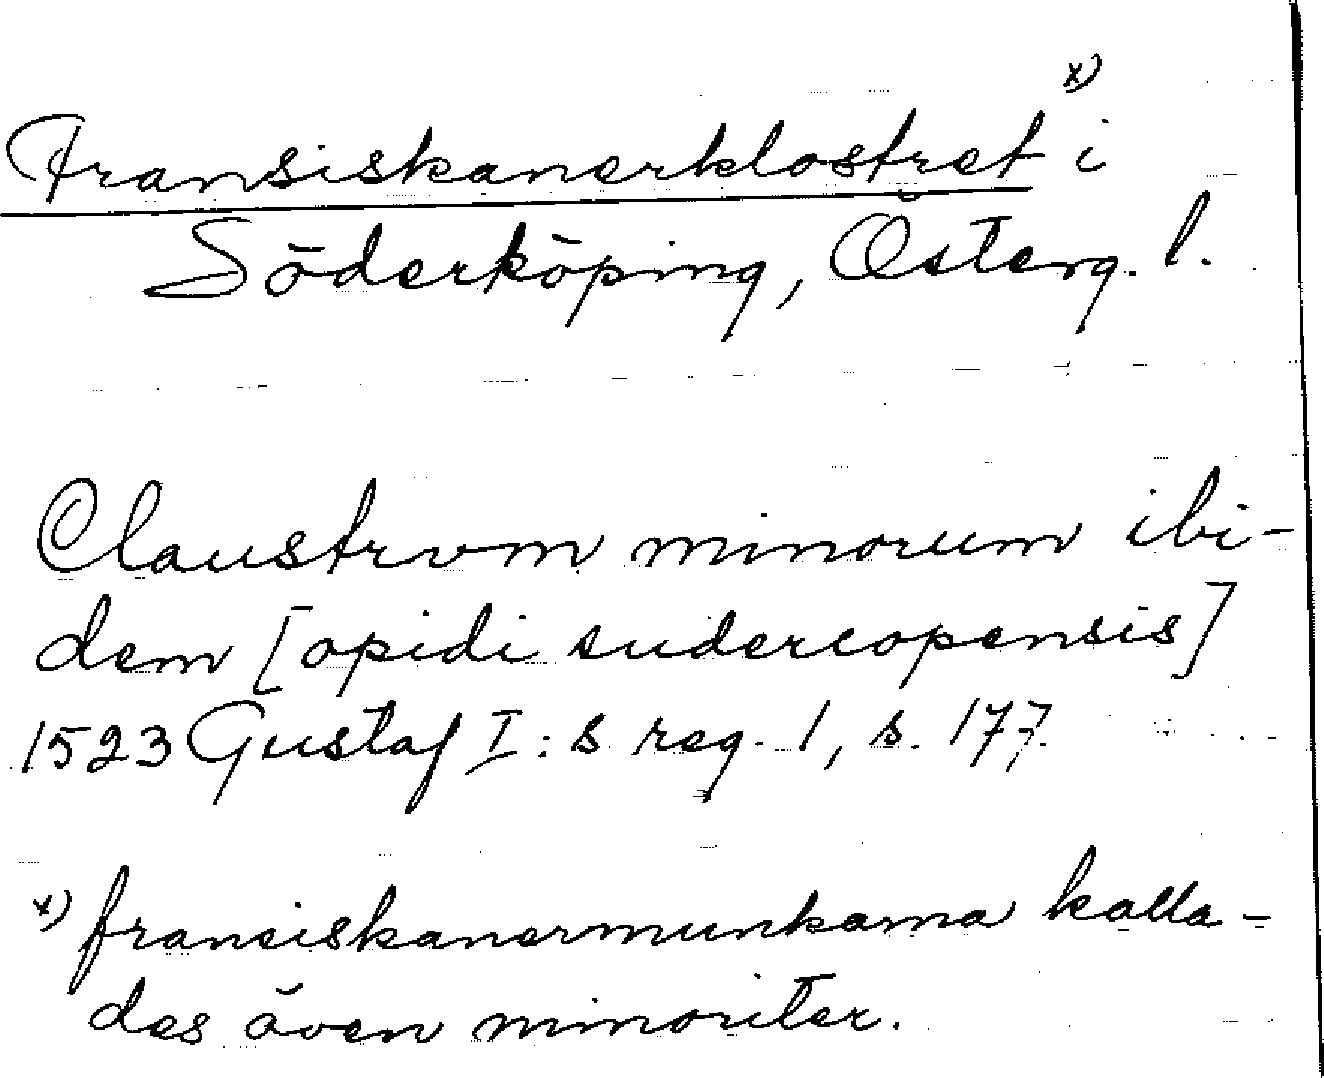 Fransiskanerklostret x) i
Söderköping, Österg. l.
Claustrvm minorum ibi-
dem [opidi sudercopensis]
1523 Gustaf I:s reg. 1, s. 177.
x) franciskanermunkarna kalla-
des även minoriter.